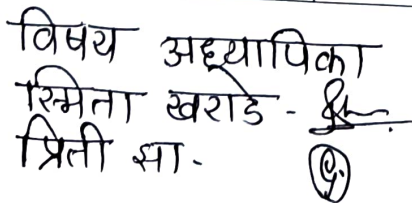 विषय अध्यापिका
स्मिता खराडे -
प्रिती झा -